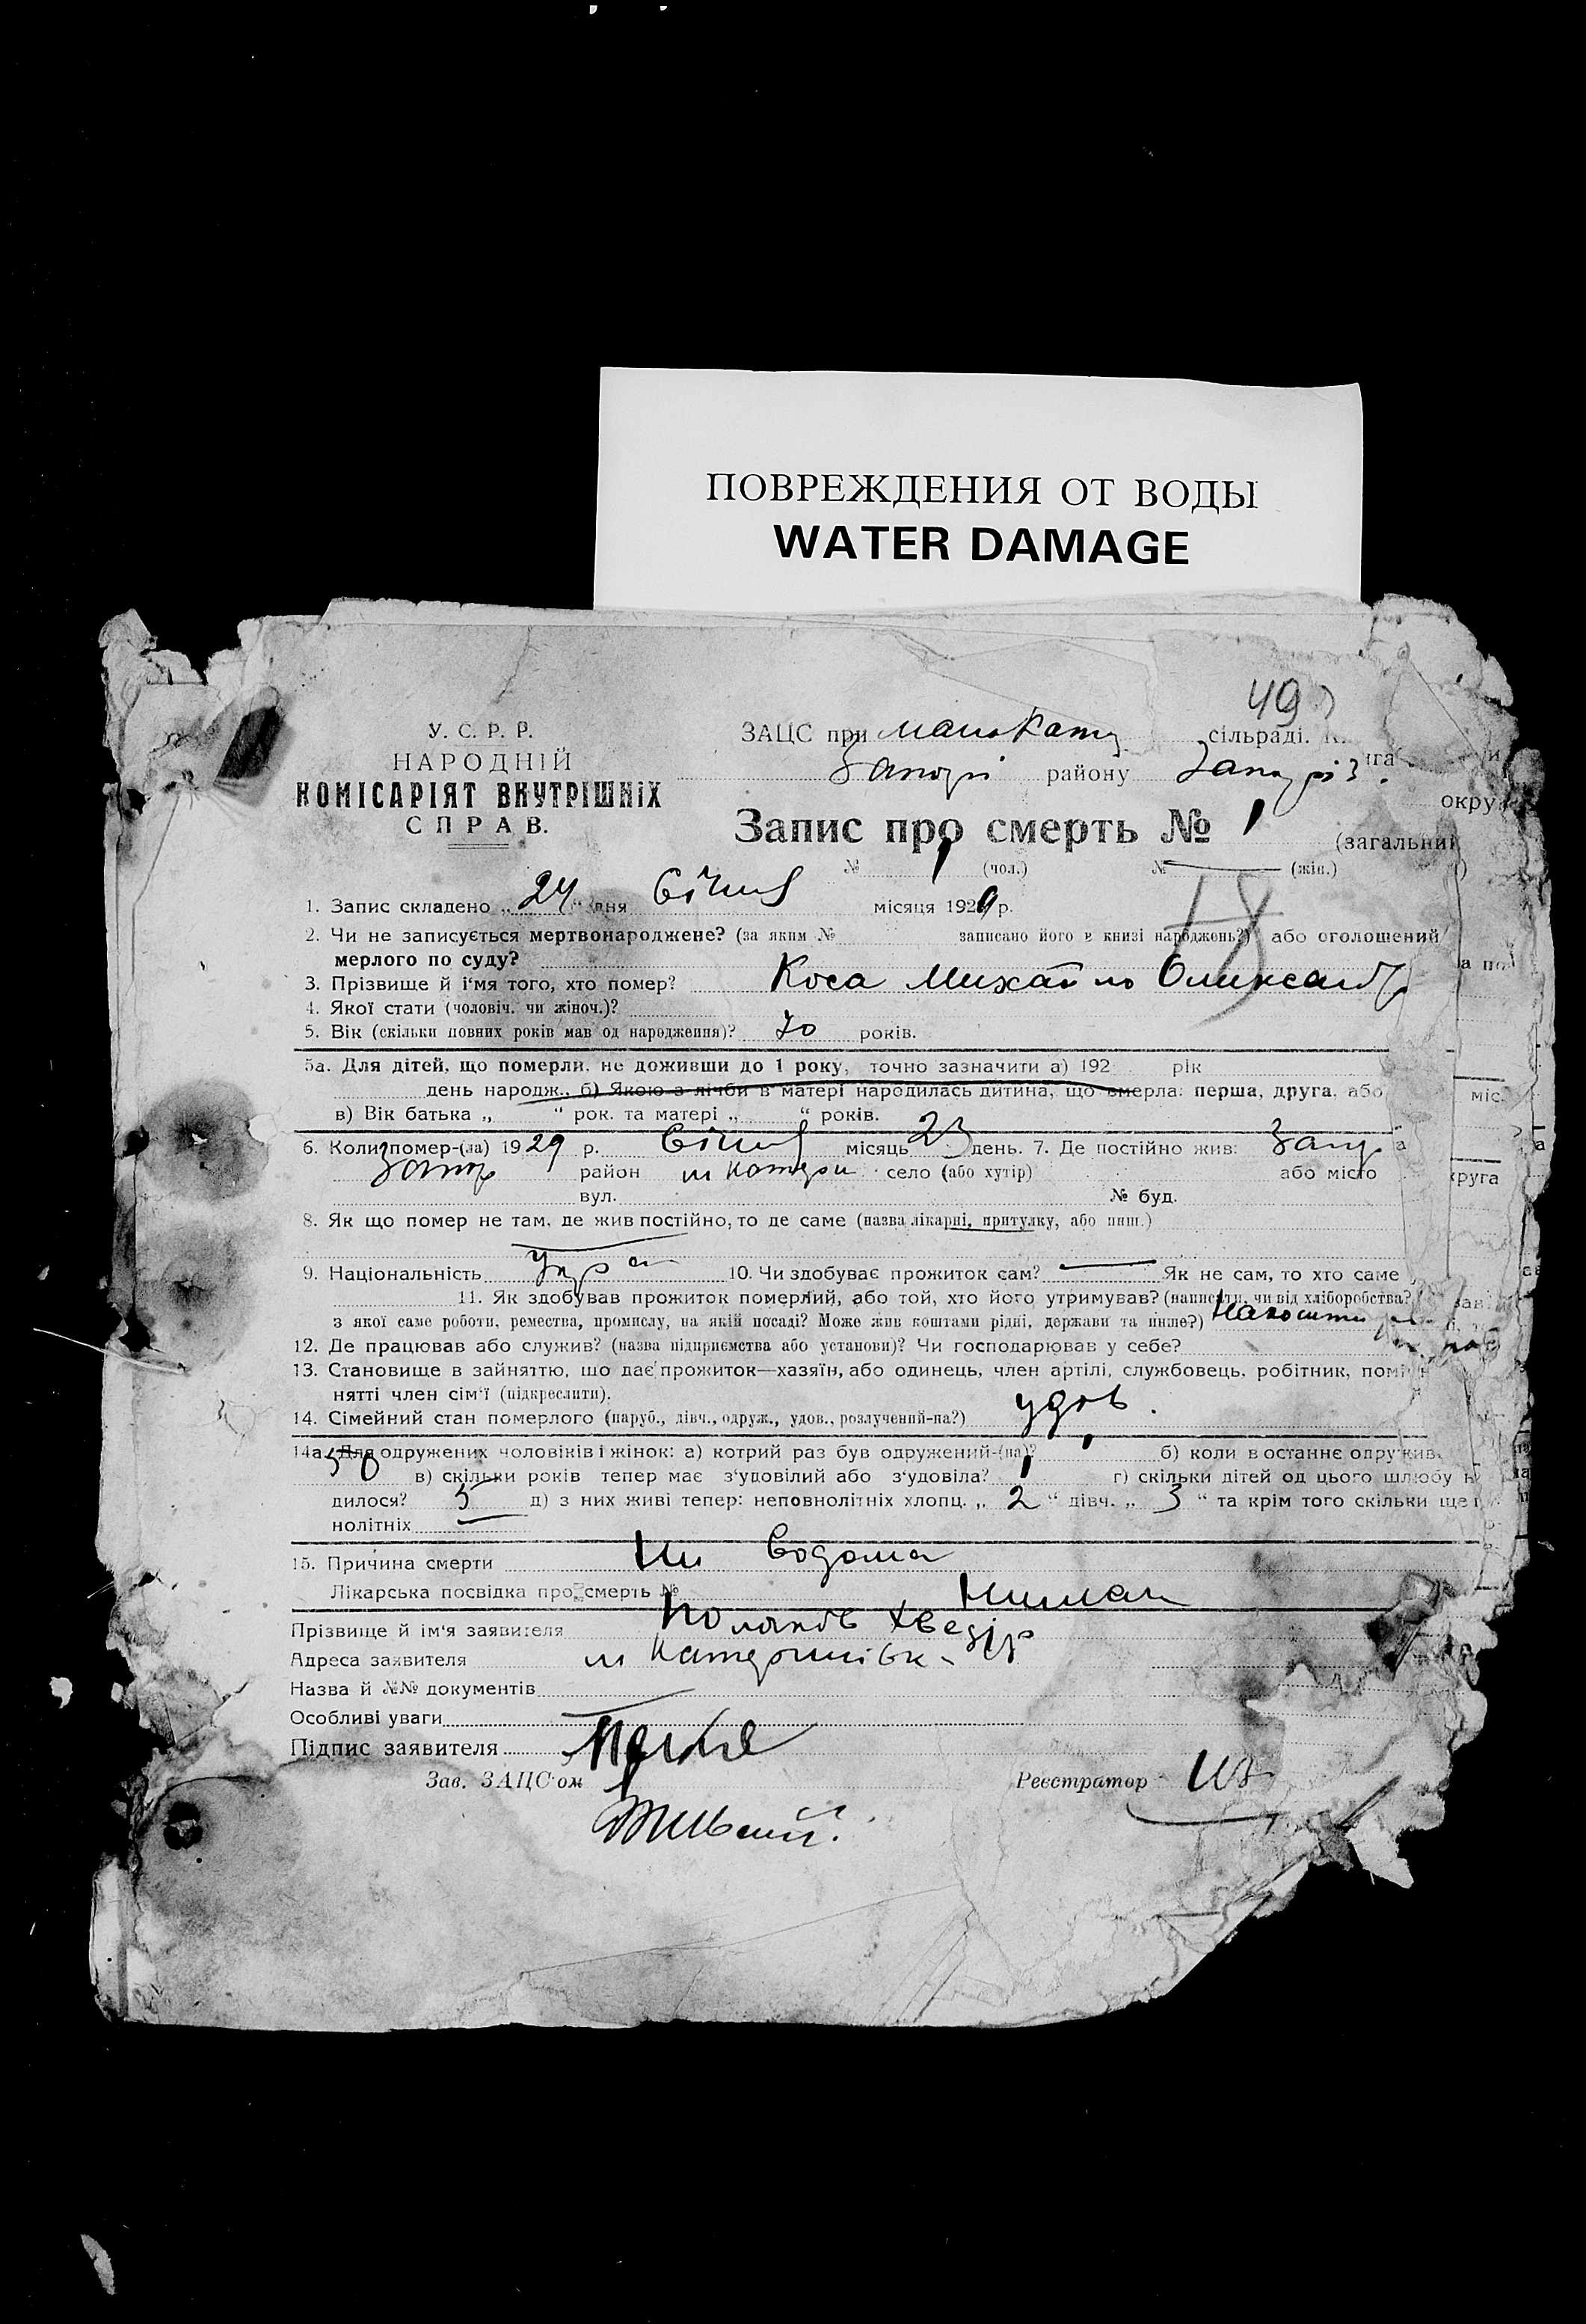 ПОВРЕЖДЕНИЯ ОТ ВОДЫ
WATER DAMAGE
49
У. С. Р. Р.
НАРОДНІЙ
КОМІСАРІЯТ ВНУТРІШНІХ
СПРАВ.
ЗАЦС при сільраді.
району
округ
Запис про смерть № 1 (загальний)
№ 1 (чол.) № — (жін.)
1. Запис складено „ 24 “ дня Січня місяця 1929 р.
2. Чи не записується мертвонароджене? (за яким № записано його в книзі народжень?) або оголошений
мерлого по суду?
3. Прізвище й і'мя того, хто помер? Коса Михайло Олександр
4. Якої стати (чоловіч. чи жіноч.)?
5. Вік (скільки повних років мав од народження)? 70 років.
5а. Для дітей, що померли, не доживши до 1 року, точно зазначити а) 192 рік
день народж., б) Якою з лічби в матері народилась дитина, що вмерла: перша, друга, або
в) Вік батька „ “ рок. та матері „ “ років.
6. Коли помер-(ла) 1929 р. Січня місяць 23 день. 7. Де постійно жив: Запор
Запор район м Катери село (або хутір) або місто
вул. № буд.
8. Як що помер не там, де жив постійно, то де саме (назва лікарні, притулку, або инш.)
9. Національність Укр 10. Чи здобуває прожиток сам? — Як не сам, то хто саме
11. Як здобував прожиток померлий, або той, хто його утримував? (написати, чи від хліборобства?
з якої саме роботи, ремества, промислу, на якій посаді? Може жив коштами рідні, держави та инше?) На кошти
12. Де працював або служив? (назва підприємства або установи)? Чи господарював у себе?
13. Становище в зайняттю, що дає прожиток—хазяїн, або одинець, член артілі, службовець, робітник, поміч
нятті член сім'ї (підкреслити).
14. Сімейний стан померлого (паруб., дівч., одруж., удов., розлучений-на?) удов.
14а. Для одружених чоловіків і жінок: а) котрий раз був одружений-(на)? 1 б) коли востаннє одружив
в) скільки років тепер має з'удовілий або з'удовіла? 1 г) скільки дітей од цього шлюбу н
дилося? 5 д) з них живі тепер: неповнолітніх хлопц. „ 2 “ дівч. „ 3 “ та крім того скільки ще
нолітніх —
15. Причина смерти Ни водома
Лікарська посвідка про смерть № Нимає
Прізвище й ім'я заявителя Хведір
Адреса заявителя м Катеринівк
Назва й №№ документів
Особливі уваги
Підпис заявителя
Зав. ЗАЦС'ом Реєстратор